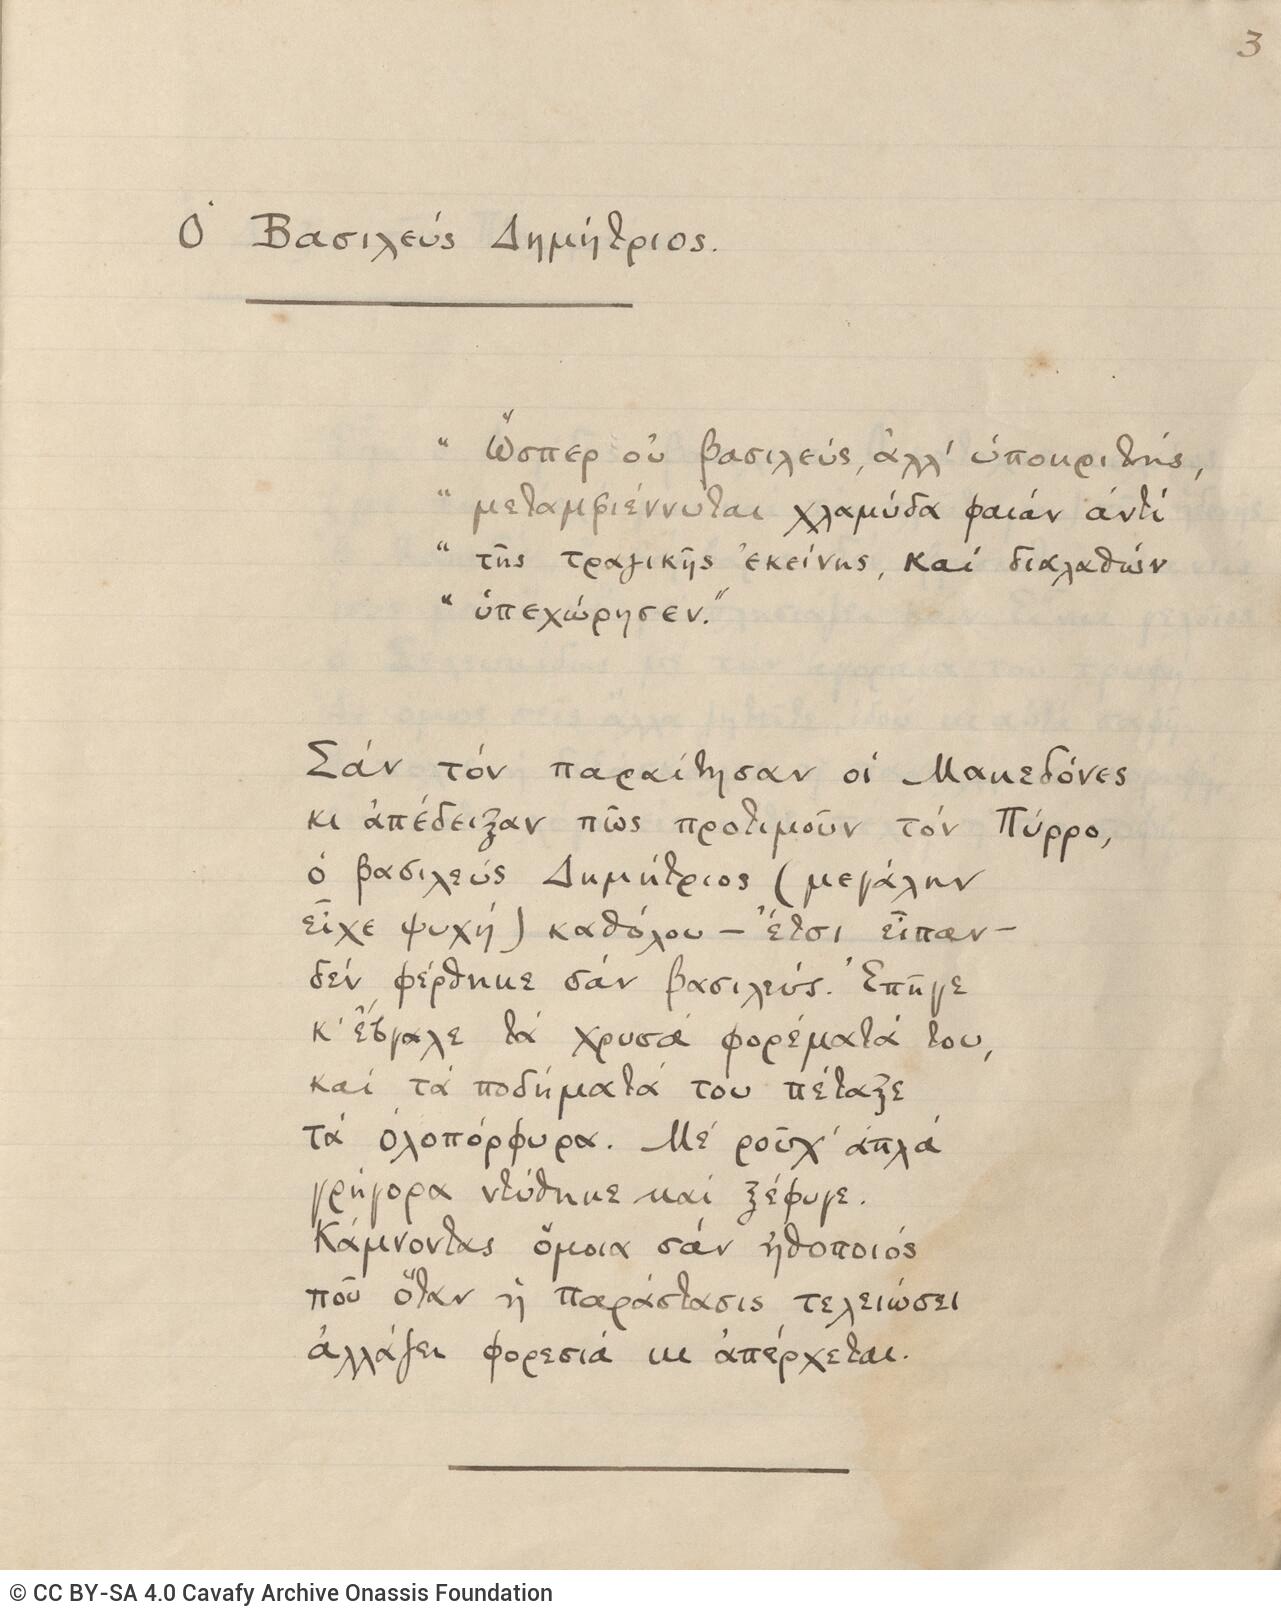 3
Ὁ Βασιλεύς Δημήτριος.
“ Ὥσπερ οὐ βασιλεύς, ἀλλ' ὑποκριτής,
“ μεταμφιέννυται χλαμύδα φαιάν ἀντί
“ τῆς τραγικῆς ἐκείνης, καί διαλαθών
“ ὑπεχώρησεν.”
Σάν τόν παραίτησαν οἱ Μακεδόνες
κι ἀπέδειξαν πῶς προτιμοῦν τόν Πύρρο,
ὁ βασιλεύς Δημήτριος (μεγάλην
εἶχε ψυχή) καθόλου — ἔτσι εἶπαν —
δέν φέρθηκε σάν βασιλεύς. Ἐπῆγε
κ' ἔβγαλε τά χρυσά φορέματά του,
καί τά ποδήματά του πέταξε
τά ὁλοπόρφυρα. Μέ ροῦχ' ἁπλά
γρήγορα ντύθηκε καί ξέφυγε.
Κάμνοντας ὅμοια σάν ἠθοποιός
ποῦ ὅταν ἡ παράστασις τελειώσει
ἀλλάζει φορεσιά κι ἀπέρχεται.
© CC BY-SA 4.0 Cavafy Archive Onassis Foundation